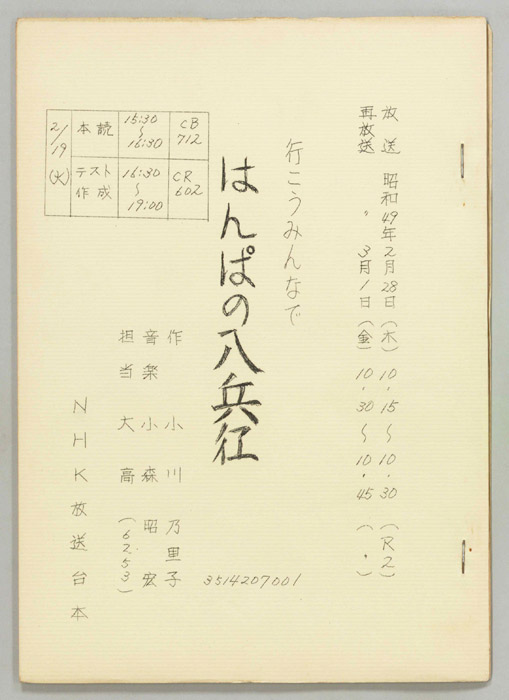 放送 昭和49年2月28日(木) 10.15〜10.30 (R2)
再放送 〃 3月1日(金) 10.30〜10.45 (.)
行こうみんなで
はんぱの八兵衛
3514207001
作 小川乃里子
音楽 小森昭宏
担当 大高 (6253)
NHK放送台本
2/19(火)
本読 15:30〜16:30 CB712
テスト作成 16:30〜19:00 CR602